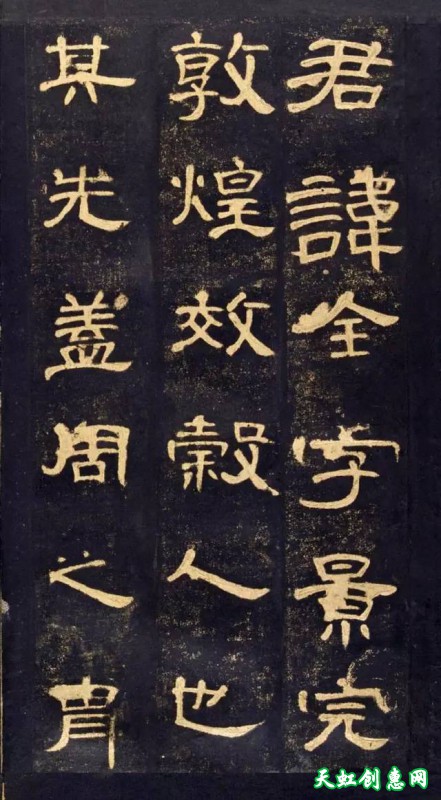 君諱全字景完
敦煌效穀人也
其先蓋周之胄
天虹创惠网